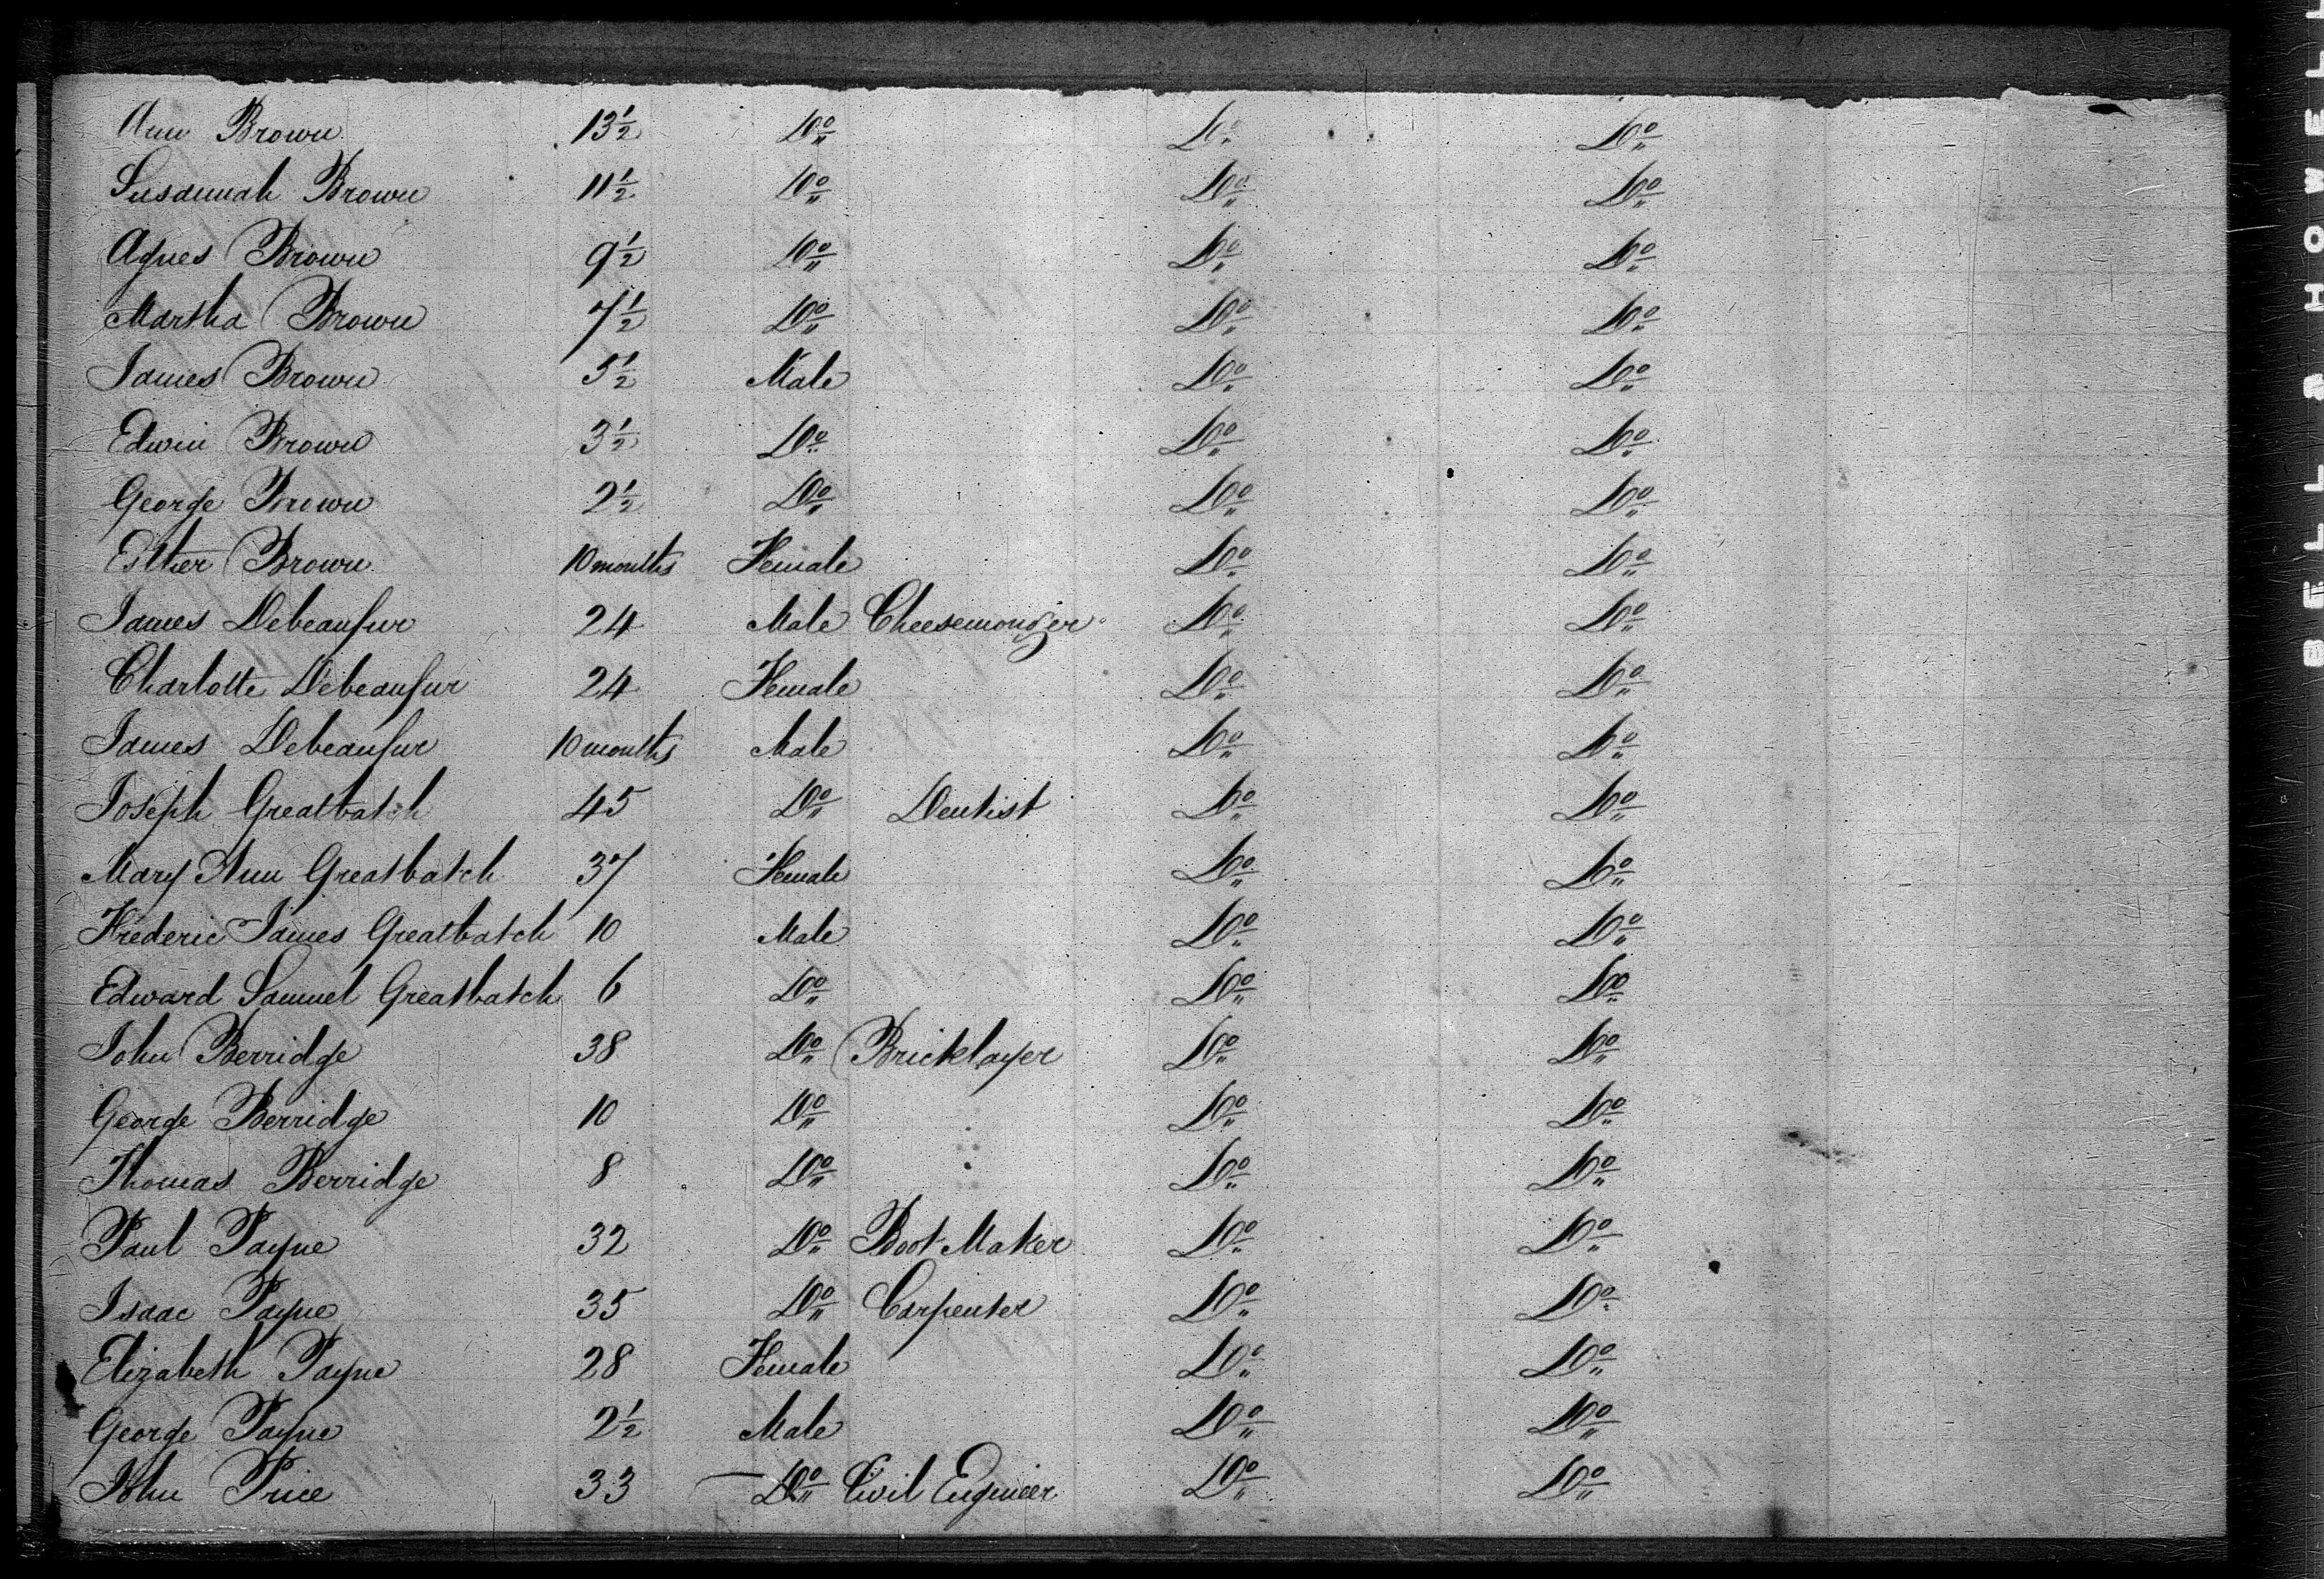 Ann Brown 13½ Do Do Do
Susannah Brown 11½ Do Do Do
Agnes Brown 9½ Do Do Do
Martha Brown 7½ Do Do Do
James Brown 5½ Male Do Do
Edwin Brown 3½ Do Do Do
George Brown 2½ Do Do Do
Esther Brown 10 months Female Do Do
James Debeaufur 24 Male Cheesemonger Do Do
Charlotte Debeaufur 24 Female Do Do
James Debeaufur 10 months Male Do Do
Joseph Greatbatch 45 Do Dentist Do Do
Mary Ann Greatbatch 37 Female Do Do
Frederic James Greatbatch 10 Male Do Do
Edward Samuel Greatbatch 6 Do Do Do
John Berridge 38 Do Bricklayer Do Do
George Berridge 10 Do Do Do
Thomas Berridge 8 Do Do Do
Paul Payne 32 Do Boot Maker Do Do
Isaac Payne 35 Do Carpenter Do Do
Elizabeth Payne 28 Female Do Do
George Payne 2½ Male Do Do
John Price 33 Do Civil Engineer Do Do
BELL & HOWELL